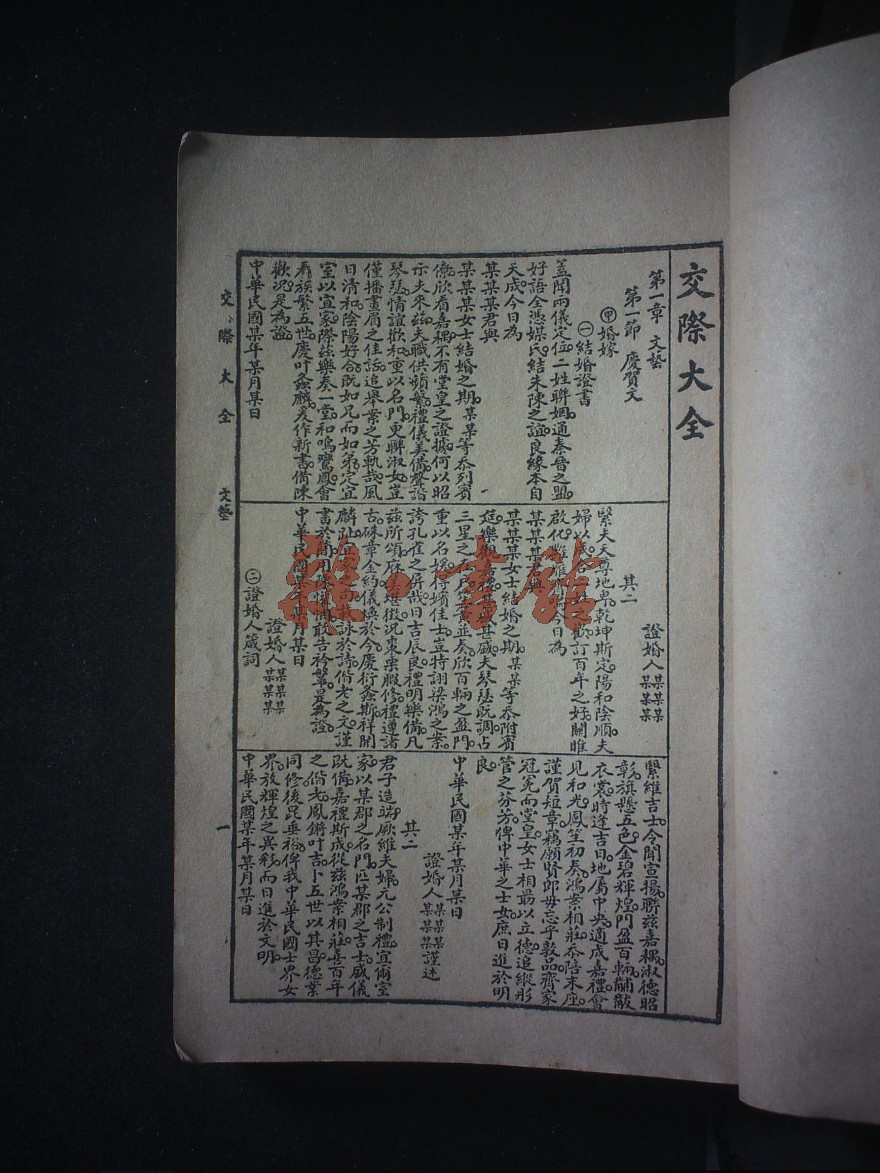 交際大全
第一章 文藝
第一節 慶賀文
甲 婚嫁
㊀結婚證書
蓋聞兩儀定位。二姓聯姻。通秦晉之盟。
好語全憑媒氏。結朱陳之誼。良緣本自
天成。今日為
某某某君與
某某某女士結婚之期。某某等忝列賓
僚。欣看嘉耦。不有堂皇之證據。何以昭
示夫來茲。夫職供蘋蘩。禮儀美備。聲諧
琴瑟。情誼歡和。重以名門。更聯淑女。豈
僅播畫眉之佳話。追舉案之芳軌哉。風
日清和。陰陽好合。既如兄而如弟。定宜
室以宜家。際茲樂奏一堂。和鳴鸞鳳。會
看族繁五世。慶叶螽麟。爰作新書。備陳
歡況。是為證。
中華民國某年某月某日
證婚人某某某
某某某
其二
緊夫天尊地卑。乾坤斯定。陽和陰順。夫
婦以
之歡。訂百年之好。關雎
啟化
今日為
某某某
某某某女士結婚之期。某某等忝附賓
筵。樂觀
戚。夫琴瑟既調。占
三星之
並奏。欣百輛之盈門。
重以名媛。得嬪佳士。豈特詡梁鴻之案。
誇孔雀之屏哉。日吉辰良。禮明樂備。凡
茲所頌。庥
徵。況棗栗腶修。禮遵諸
古。硃章金約。儀煥於今。慶衍螽斯。祥開
麟趾。
詠於詩。偕老之文。謹
書於簡。用
敢告衿鞶。是為證。
中華民國某年某月某日
證婚人某某某
某某某
㊁證婚人箴詞
緊維吉士。令聞宣揚。聯茲嘉耦。淑德昭
彰。旗懸五色。金碧輝煌。門盈百輛。黼黻
衣裳。時逢吉日。地屬中央。適成嘉禮。會
見和光。鳳笙初奏。鴻案相莊。忝陪末座。
謹賀短章。竊願賢郎。毋忘乎敦品齊家。
冠冕而堂皇。女士相最以立德。追縱彤
管之芬芳。俾中華之士女。庶日進於明
良。
中華民國某年某月某日
證婚人某某某謹述
某某某
其二
君子造端。厥維夫婦。元公制禮。宜爾室
家。以某郡之名門。匹某郡之吉士。威儀
既備。嘉禮斯成。從茲鴻案相莊。喜百年
之偕老。鳳鏘叶吉。卜五世以其昌。德業
同修。後昆垂裕。俾我中華民國士界女
界。放輝煌之異彩。而日進於文明。
中華民國某年某月某日
交際大全 文藝 一
雞·書館